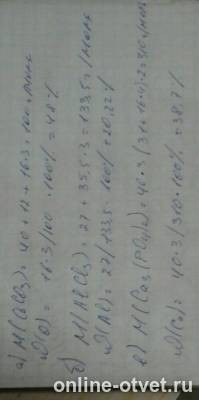 а) M(CaCO3) = 40 + 12 + 16·3 = 100 г/моль
ω(O) = 16·3/100 · 100% = 48%
б) M(AlCl3) = 27 + 35,5·3 = 133,5 г/моль
ω(Al) = 27/133,5 · 100% = 20,22%
в) M(Ca3(PO4)2) = 40·3 + (31 + 16·4)·2 = 310 г/моль
ω(Ca) = 40·3/310 · 100% = 38,7%
online-otvet.ru